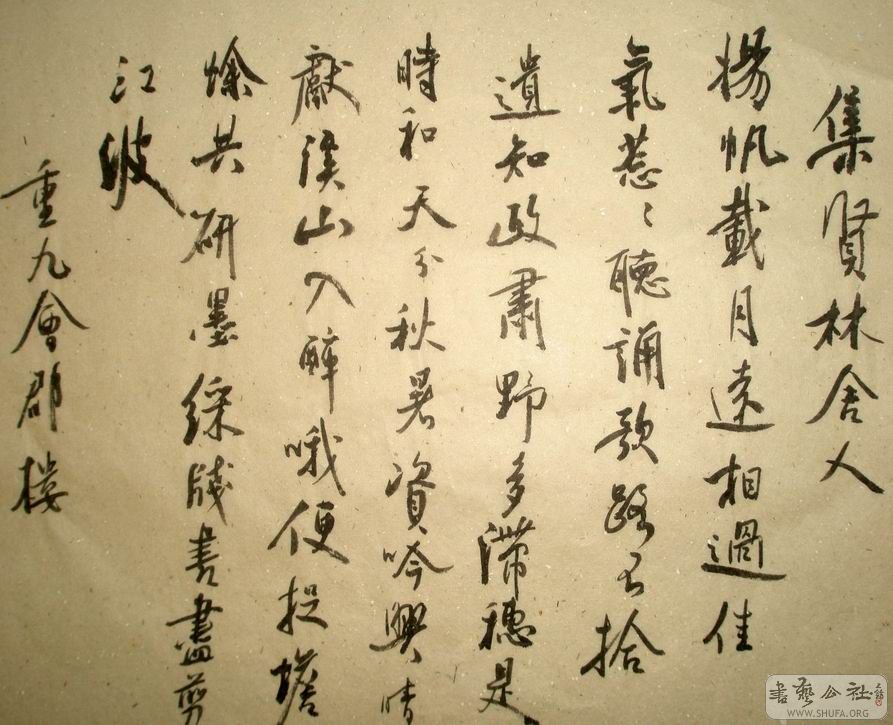 集賢林舍人
揚帆載月遠相過佳
氣葱〻聽誦歌路不拾
遺知政肅野多滯穗是
時和天分秋暑資吟興晴
獻溪山入醉哦便捉蟾
蜍共研墨綵牋書盡剪
江波
重九會郡樓
書藝公社
WWW.SHUFA.ORG